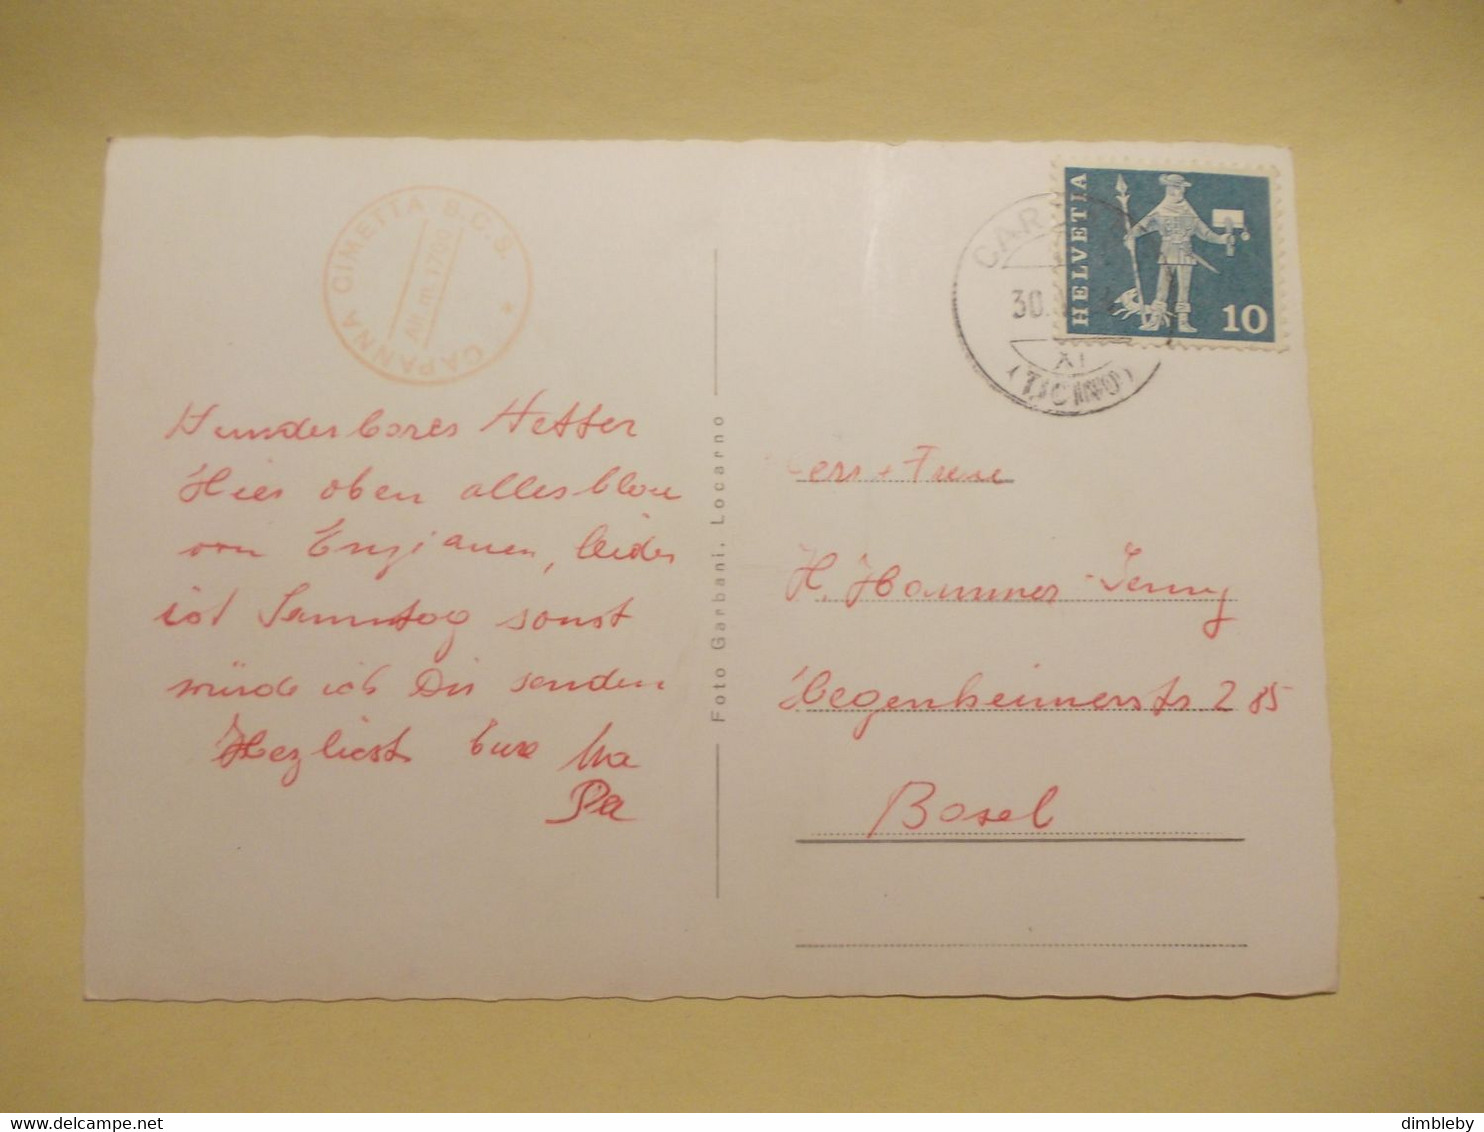 CAPANNA CIMETTA B.C.S. *
Alt. m. 1700
Wunderbares Wetter
Hier oben alles blau
von Enzianen, leider
ist Sonntag sonst
würde ich Dir senden
Herzliest Eure Ma
Pa
Foto Garbani. Locarno
HELVETIA
10
30.
XI
(TICINO)
Herr + Frau
H. Hammer-Jenny
Hegenheimerstr 285
Basel
dimbleby
delcampe.net